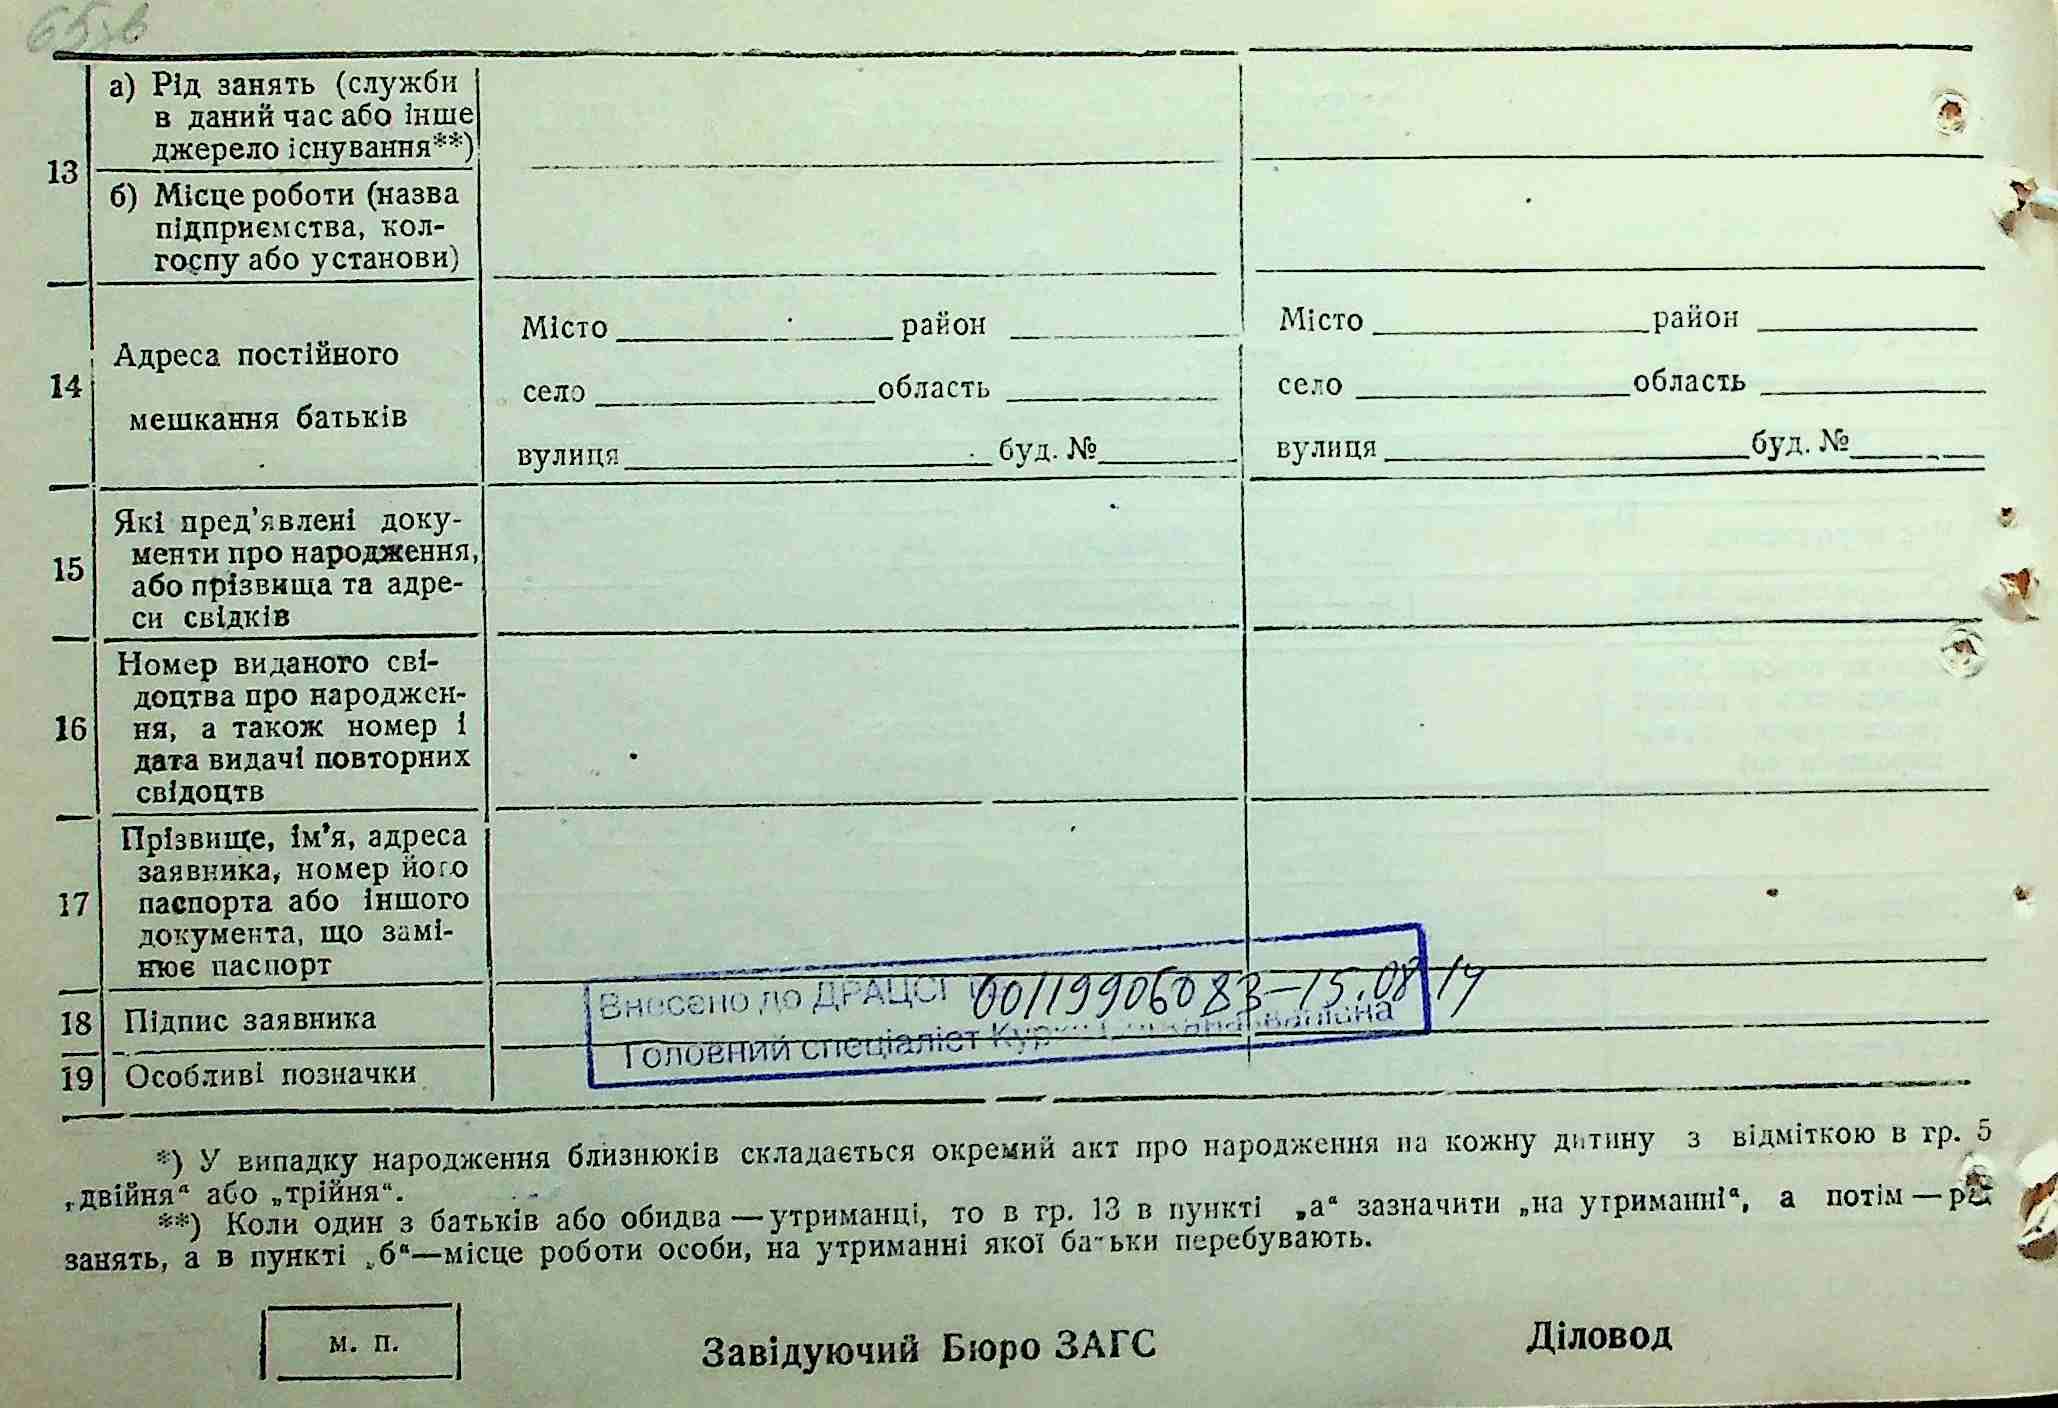 а) Рід занять (служби
в даний час або інше
джерело існування**)
13
б) Місце роботи (назва
підприємства, кол-
госпу або установи)
Місто район Місто район
Адреса постійного
14
село область село область
мешкання батьків
вулиця буд. № вулиця буд. №
Які пред'явлені доку-
менти про народження,
15
або прізвища та адре-
си свідків
Номер виданого сві-
доцтва про народжен-
16 ня, а також номер і
дата видачі повторних
свідоцтв
Прізвище, ім'я, адреса
заявника, номер його
17 паспорта або іншого
документа, що замі-
нює паспорт
Внесено до ДРАЦСГ 00119906083-15.08 14
18 Підпис заявника
Головний спеціаліст
19 Особливі позначки
*) У випадку народження близнюків складається окремий акт про народження на кожну дитину з відміткою в гр. 5
„двійня“ або „трійня“.
**) Коли один з батьків або обидва — утриманці, то в гр. 13 в пункті „а“ зазначити „на утриманні“, а потім — рід
занять, а в пункті „б“—місце роботи особи, на утриманні якої батьки перебувають.
м. п. Завідуючий Бюро ЗАГС Діловод